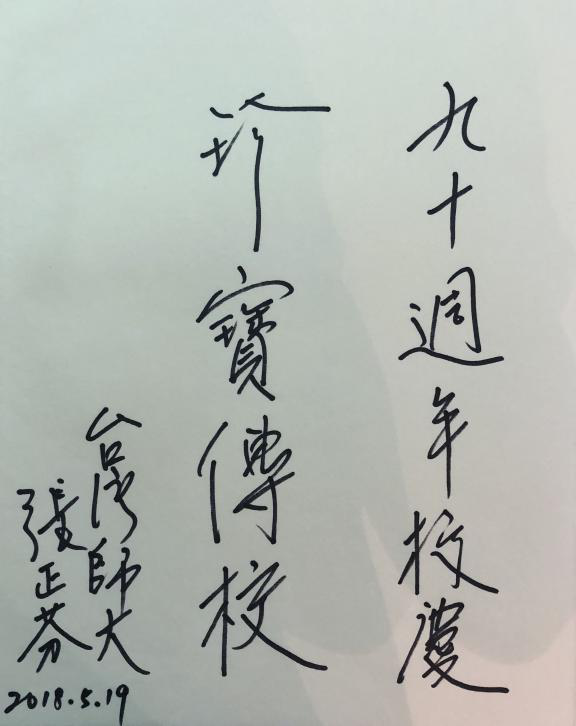 九十週年校慶
珍寶傳校
台灣師大
張正芬
2018.5.19